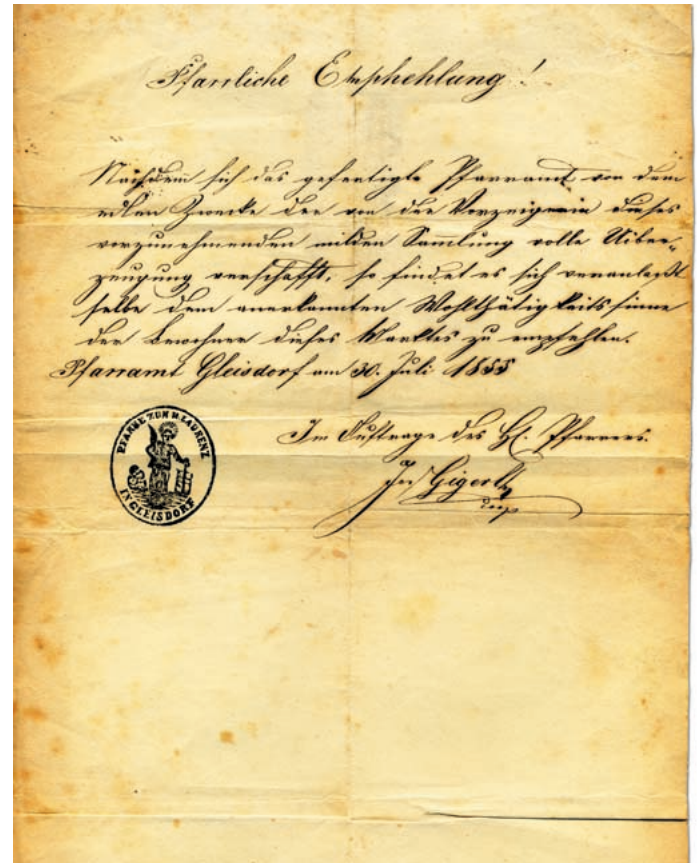 Pfarrliche Empfehlung!
Nachdem sich das gefertigte Pfarramt von dem
edlen Zwecke der von der Vorzeigerin dieses
vorzunehmenden milden Sammlung volle Uiber-
zeugung verschafft, so findet es sich veranlaßt
selbe dem anerkannten Wohlthätigkeitssinne
der Bewohner dieses Marktes zu empfehlen.
Pfarramt Gleisdorf am 30. Juli 1855
Im Auftrage des H. Pfarrers.
Gigerl
PFARRE ZUM H. LAURENZ
IN GLEISDORF